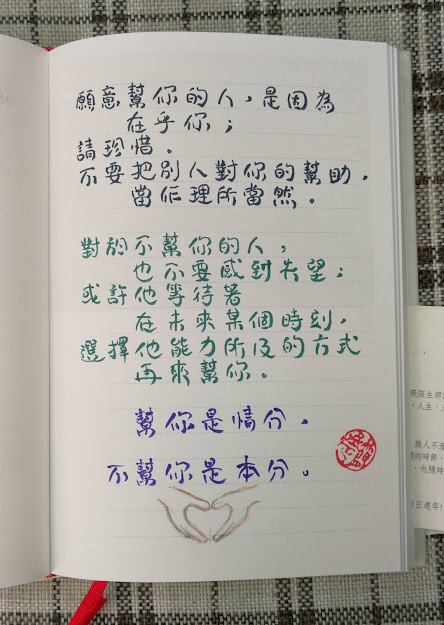 願意幫你的人，是因為
在乎你；
請珍惜。
不要把別人對你的幫助，
當作理所當然。
對於不幫你的人，
也不要感到失望；
或許他等待著
在未來某個時刻，
選擇他能力所及的方式
再來幫你。
幫你是情分，
不幫你是本分。